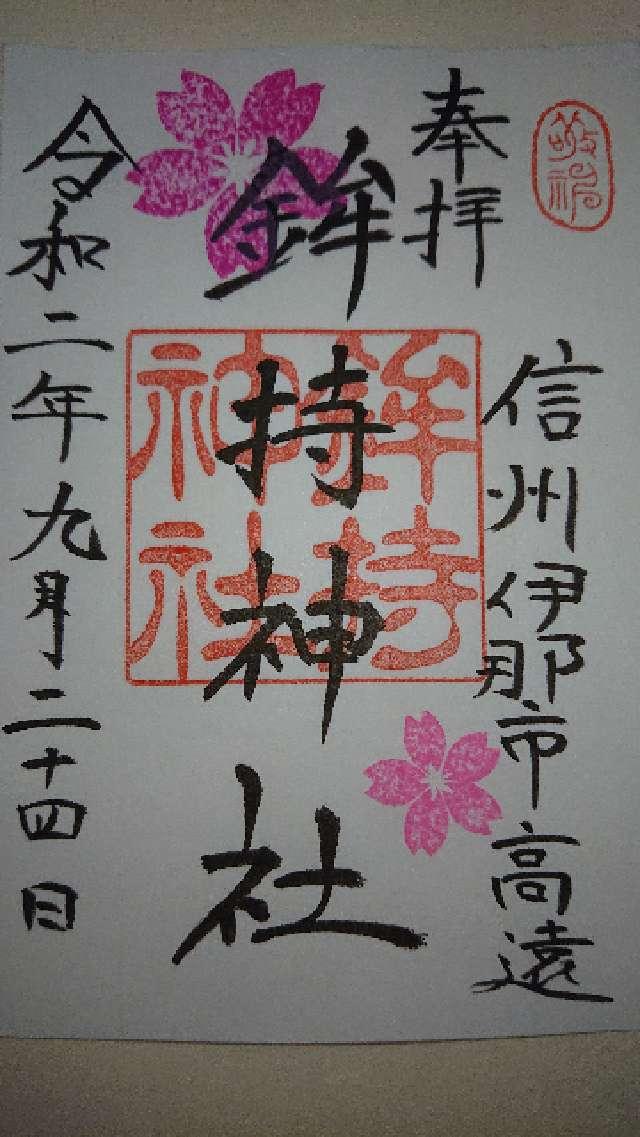 奉拝
敬神
信州伊那市高遠
鉾持神社
鉾持
神社
令和二年九月二十四日